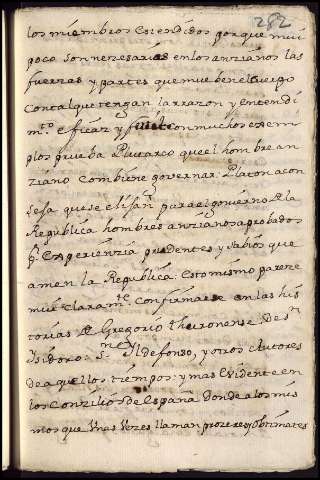 282
los miembros estendidos porque mui
poco son nezesarias en los anzianos las
fuerzas y partes que mueben el cuerpo
con tal que tengan la razon y entendi
m.to eficaz y con muchos exem
plos prueba Plutarco que el hombre an
ziano combiene governar: Platon acon
seja que se elijan para el govierno de la
Republica hombres anzianos aprobados
p.r experienzia prudentes y sabios que
amen la Republica: esto mismo pareze
mui claram.te confirmarse en las his
torias de Gregorio thuronense de S.n
Ysidoro: S.n Yldefonso, y otros Autores
de aquellos tiempos: y mas evidente en
los Conzilios de España donde a los mis
mos que unas vezes llaman prozeres y obtimates